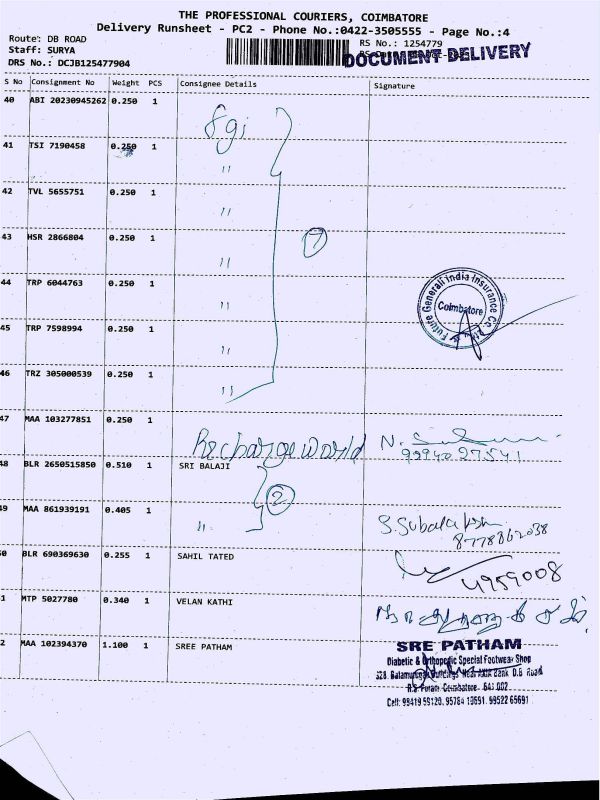 THE PROFESSIONAL COURIERS, COIMBATORE
Delivery Runsheet - PC2 - Phone No.:0422-3505555 - Page No.:4
Route: DB ROAD
Staff: SURYA
DRS No.: DCJB125477904
RS No.: 1254779
DOCUMENT DELIVERY
S No Consignment No Weight PCS Consignee Details Signature
40 ABI 20230945262 0.250 1 fgi
41 TSI 7190458 0.250 1 "
42 TVL 5655751 0.250 1 "
7
43 HSR 2866804 0.250 1 "
44 TRP 6044763 0.250 1 "
Future Generali India Insurance Co. Coimbatore
45 TRP 7598994 0.250 1 "
46 TRZ 305000539 0.250 1 "
47 MAA 103277851 0.250 1 Recharge world N.
9994027541
48 BLR 2650515850 0.510 1 SRI BALAJI
2
49 MAA 861939191 0.405 1 " S. Subalakshmi
8778862038
0 BLR 690369630 0.255 1 SAHIL TATED
4959008
1 MTP 5027780 0.340 1 VELAN KATHI
2 MAA 102394370 1.100 1 SREE PATHAM
SRE PATHAM
Diabetic & Orthopedic Special Footwear Shop
328, Balamurugan Buildings Near Bank D.B. Road
R.S. Puram Coimbatore - 641 002
Cell: 99419 59120, 95784 13691, 99522 65691